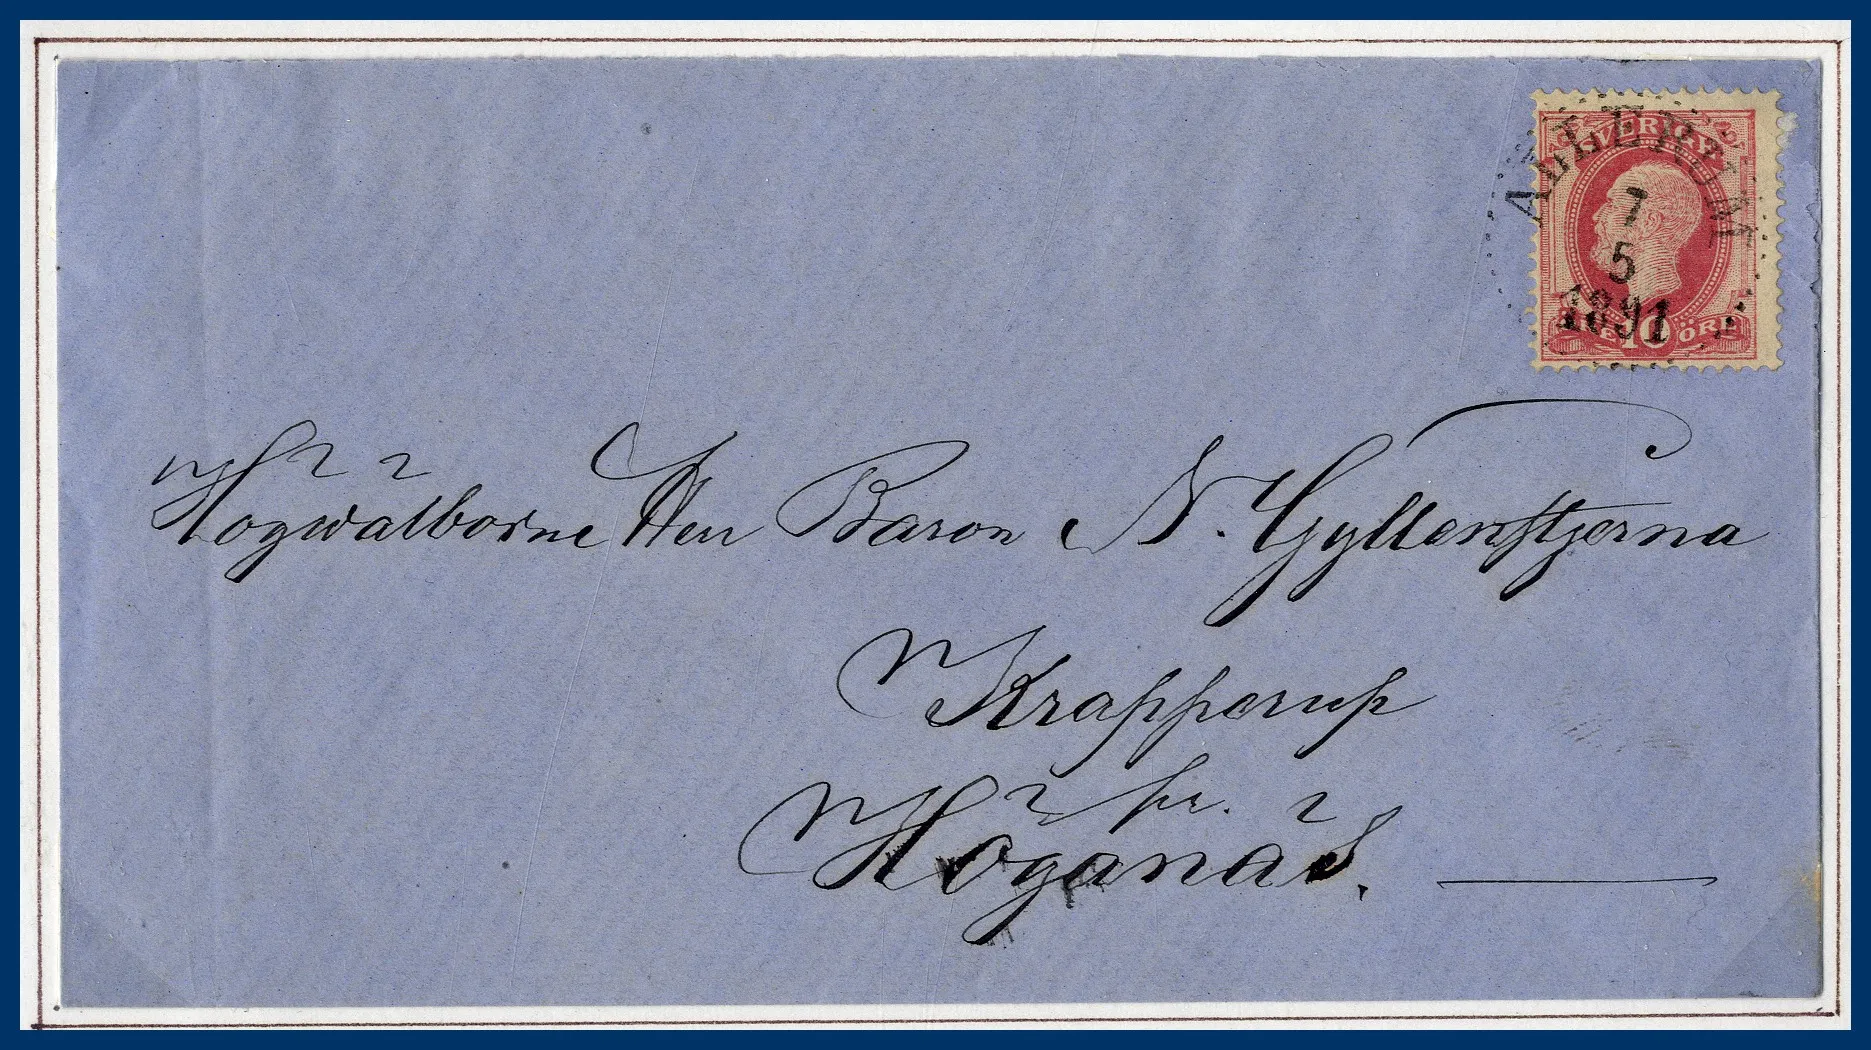 SVERIGE
ALLERUM
7
5
1891
10 ÖRE
Högwälborne Herr Baron N. Gyllenstjerna
Krapperup
pr.
Höganäs.